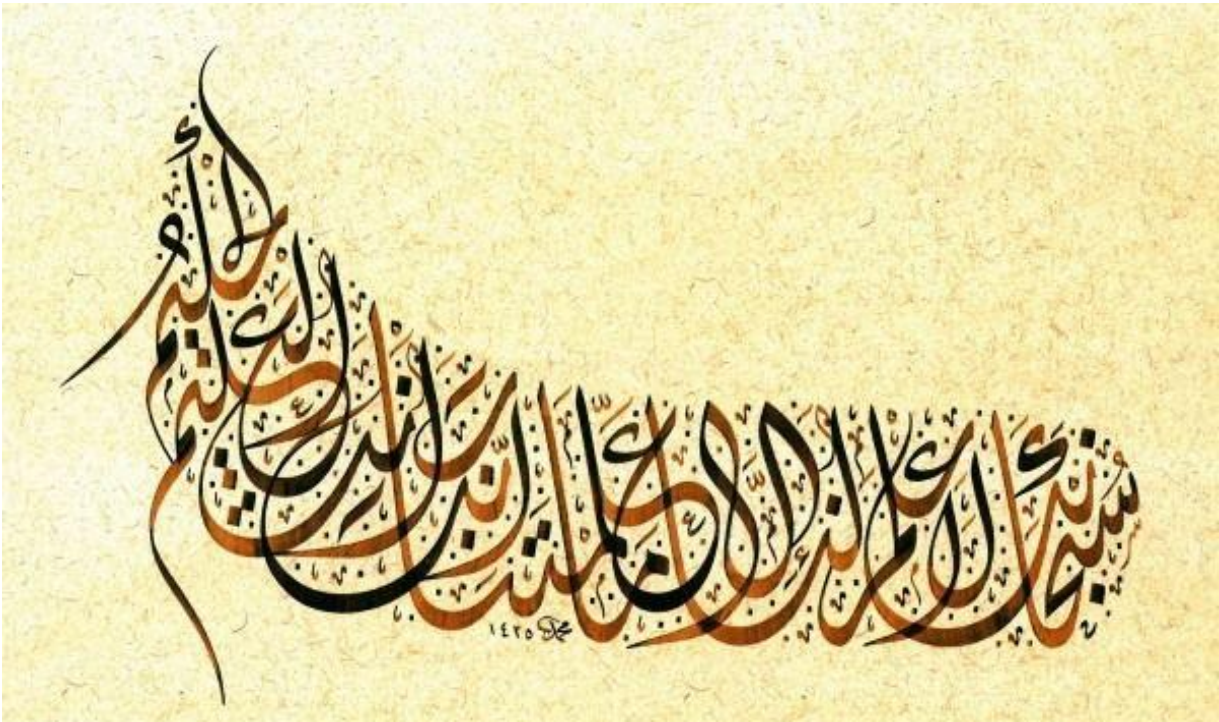 سُبْحَانَكَ لَا عِلْمَ لَنَا إِلَّا مَا عَلَّمْتَنَا إِنَّكَ أَنْتَ الْعَلِيمُ الْحَكِيمُ
١٤٢٥